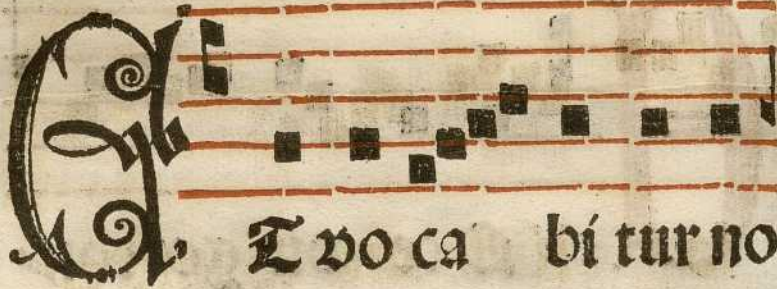 ET vo ca bi tur no